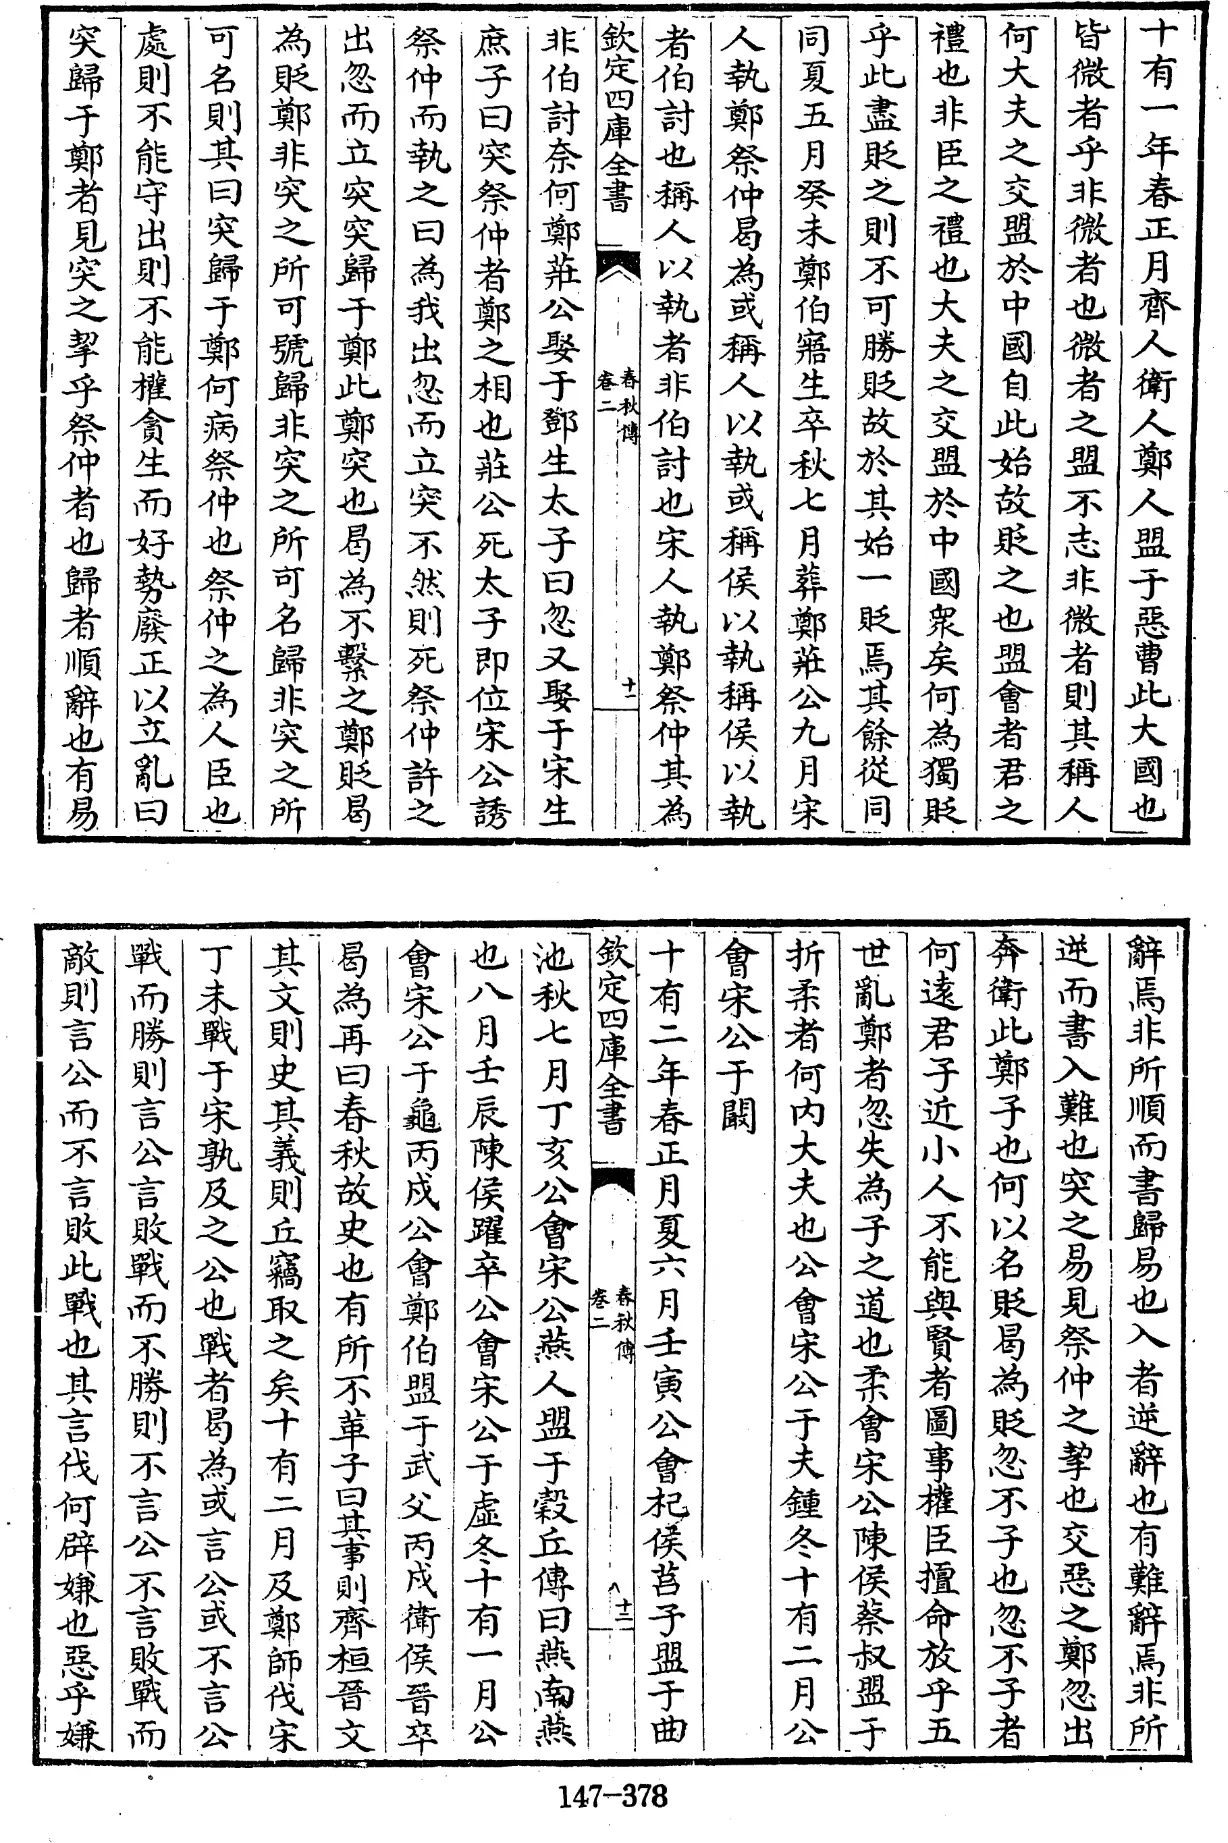 十有一年春正月齊人衛人鄭人盟于惡曹此大國也
皆微者乎非微者也微者之盟不志非微者則其稱人
何大夫之交盟於中國自此始故貶之也盟會者君之
禮也非臣之禮也大夫之交盟於中國衆矣何為獨貶
乎此盡貶之則不可勝貶故於其始一貶焉其餘從同
同夏五月癸未鄭伯寤生卒秋七月葬鄭莊公九月宋
人執鄭祭仲曷為或稱人以執或稱侯以執稱侯以執
者伯討也稱人以執者非伯討也宋人執鄭祭仲其為
欽定四庫全書
春秋傳
卷二
十一
非伯討奈何鄭莊公娶于鄧生太子曰忽又娶于宋生
庶子曰突祭仲者鄭之相也莊公死太子即位宋公誘
祭仲而執之曰為我出忽而立突不然則死祭仲許之
出忽而立突突歸于鄭此鄭突也曷為不繫之鄭貶曷
為貶鄭非突之所可號歸非突之所可名歸非突之所
可名則其曰突歸于鄭何病祭仲也祭仲之為人臣也
處則不能守出則不能權貪生而好勢廢正以立亂曰
突歸于鄭者見突之挈乎祭仲者也歸者順辭也有易
辭焉非所順而書歸易也入者逆辭也有難辭焉非所
逆而書入難也突之易見祭仲之挈也交惡之鄭忽出
奔衛此鄭子也何以名貶曷為貶忽不子也忽不子者
何遠君子近小人不能與賢者圖事權臣擅命放乎五
世亂鄭者忽失為子之道也柔會宋公陳侯蔡叔盟于
折柔者何内大夫也公會宋公于夫鍾冬十有二月公
會宋公于闞
十有二年春正月夏六月壬寅公會杞侯莒子盟于曲
欽定四庫全書
春秋傳
卷二
十二
池秋七月丁亥公會宋公燕人盟于穀丘傳曰燕南燕
也八月壬辰陳侯躍卒公會宋公于虛冬十有一月公
會宋公于龜丙戍公會鄭伯盟于武父丙戍衛侯晉卒
曷為再曰春秋故史也有所不革子曰其事則齊桓晉文
其文則史其義則丘竊取之矣十有二月及鄭師伐宋
丁未戰于宋孰及之公也戰者曷為或言公或不言公
戰而勝則言公言敗戰而不勝則不言公不言敗戰而
敵則言公而不言敗此戰也其言伐何辟嫌也惡乎嫌
147-378